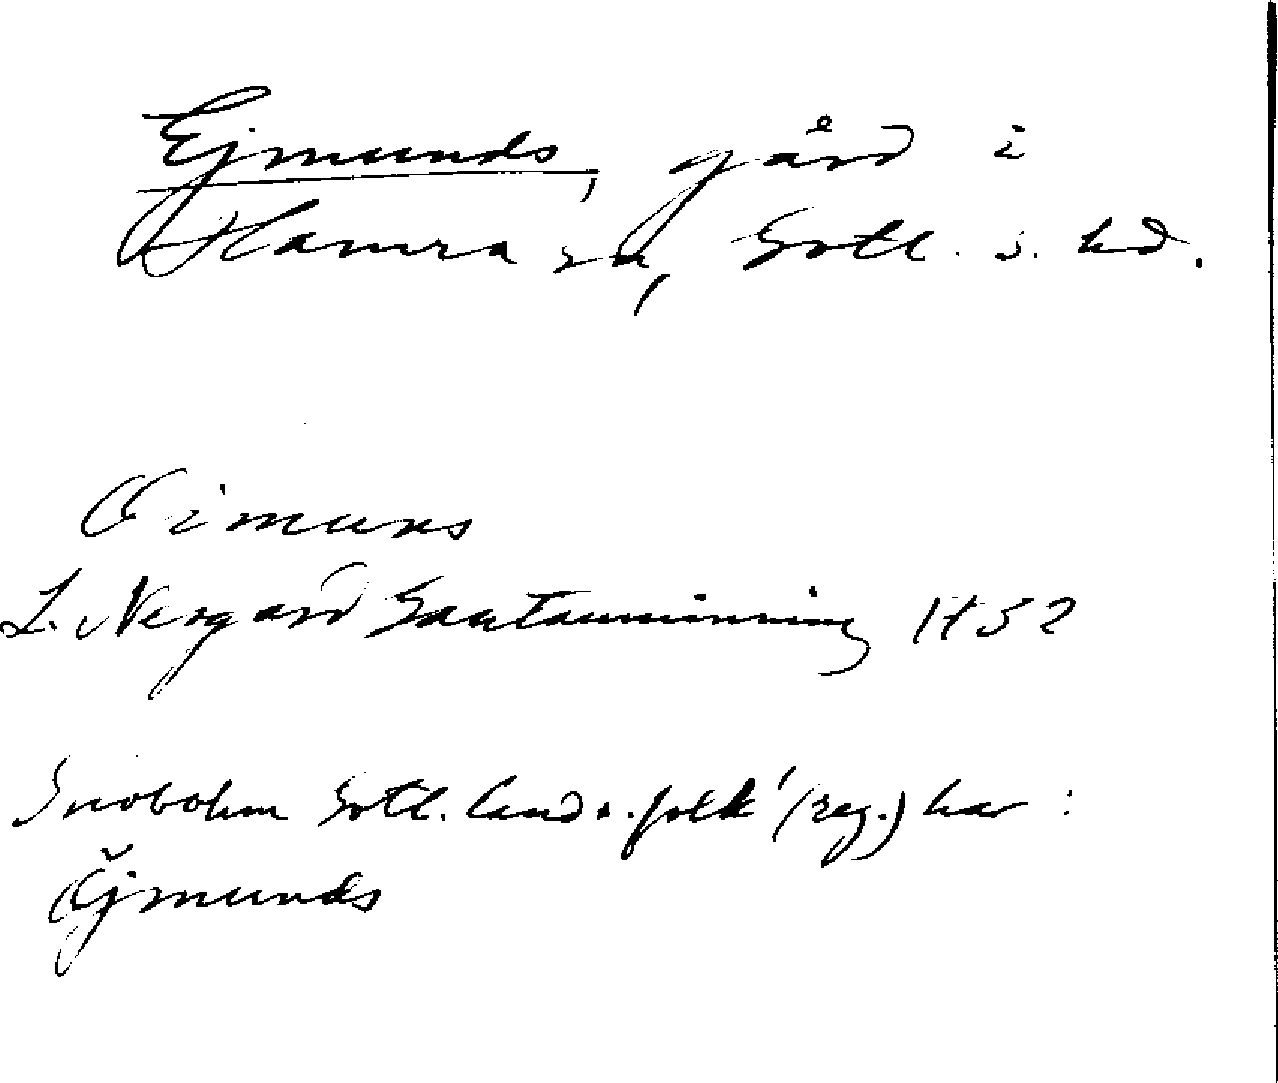 Ejmunds, gård i
Hamra sn, Gotl. s. hd.
Öimuns
L. Nergård Gautauminning 1452
Snöbohm Gotl. land o. folk (reg.) har:
Öjmunds